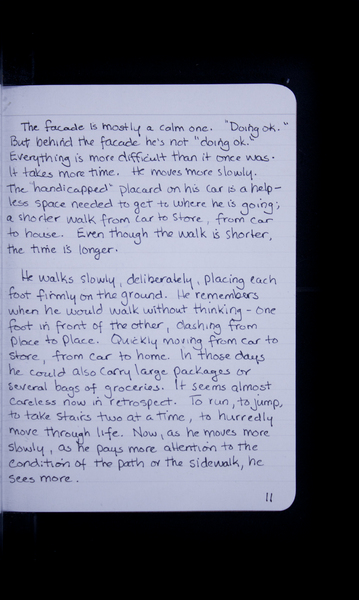 The facade is mostly a calm one. "Doing ok."
But behind the facade he's not "doing ok."
Everything is more difficult than it once was.
It takes more time. He moves more slowly.
The "handicapped" placard on his car is a help -
less space needed to get to where he is going;
a shorter walk from car to store, from car
to house. Even though the walk is shorter,
the time is longer.
He walks slowly, deliberately, placing each
foot firmly on the ground. He remembers
when he would walk without thinking - one
foot in front of the other, dashing from
place to place. Quickly moving from car to
store, from car to home. In those days
he could also carry large packages or
several bags of groceries. It seems almost
careless now in retrospect. To run, to jump,
to take stairs two at a time, to hurredly
move through life. Now, as he moves more
slowly, as he pays more attention to the
condition of the path or the sidewalk, he
sees more.
11